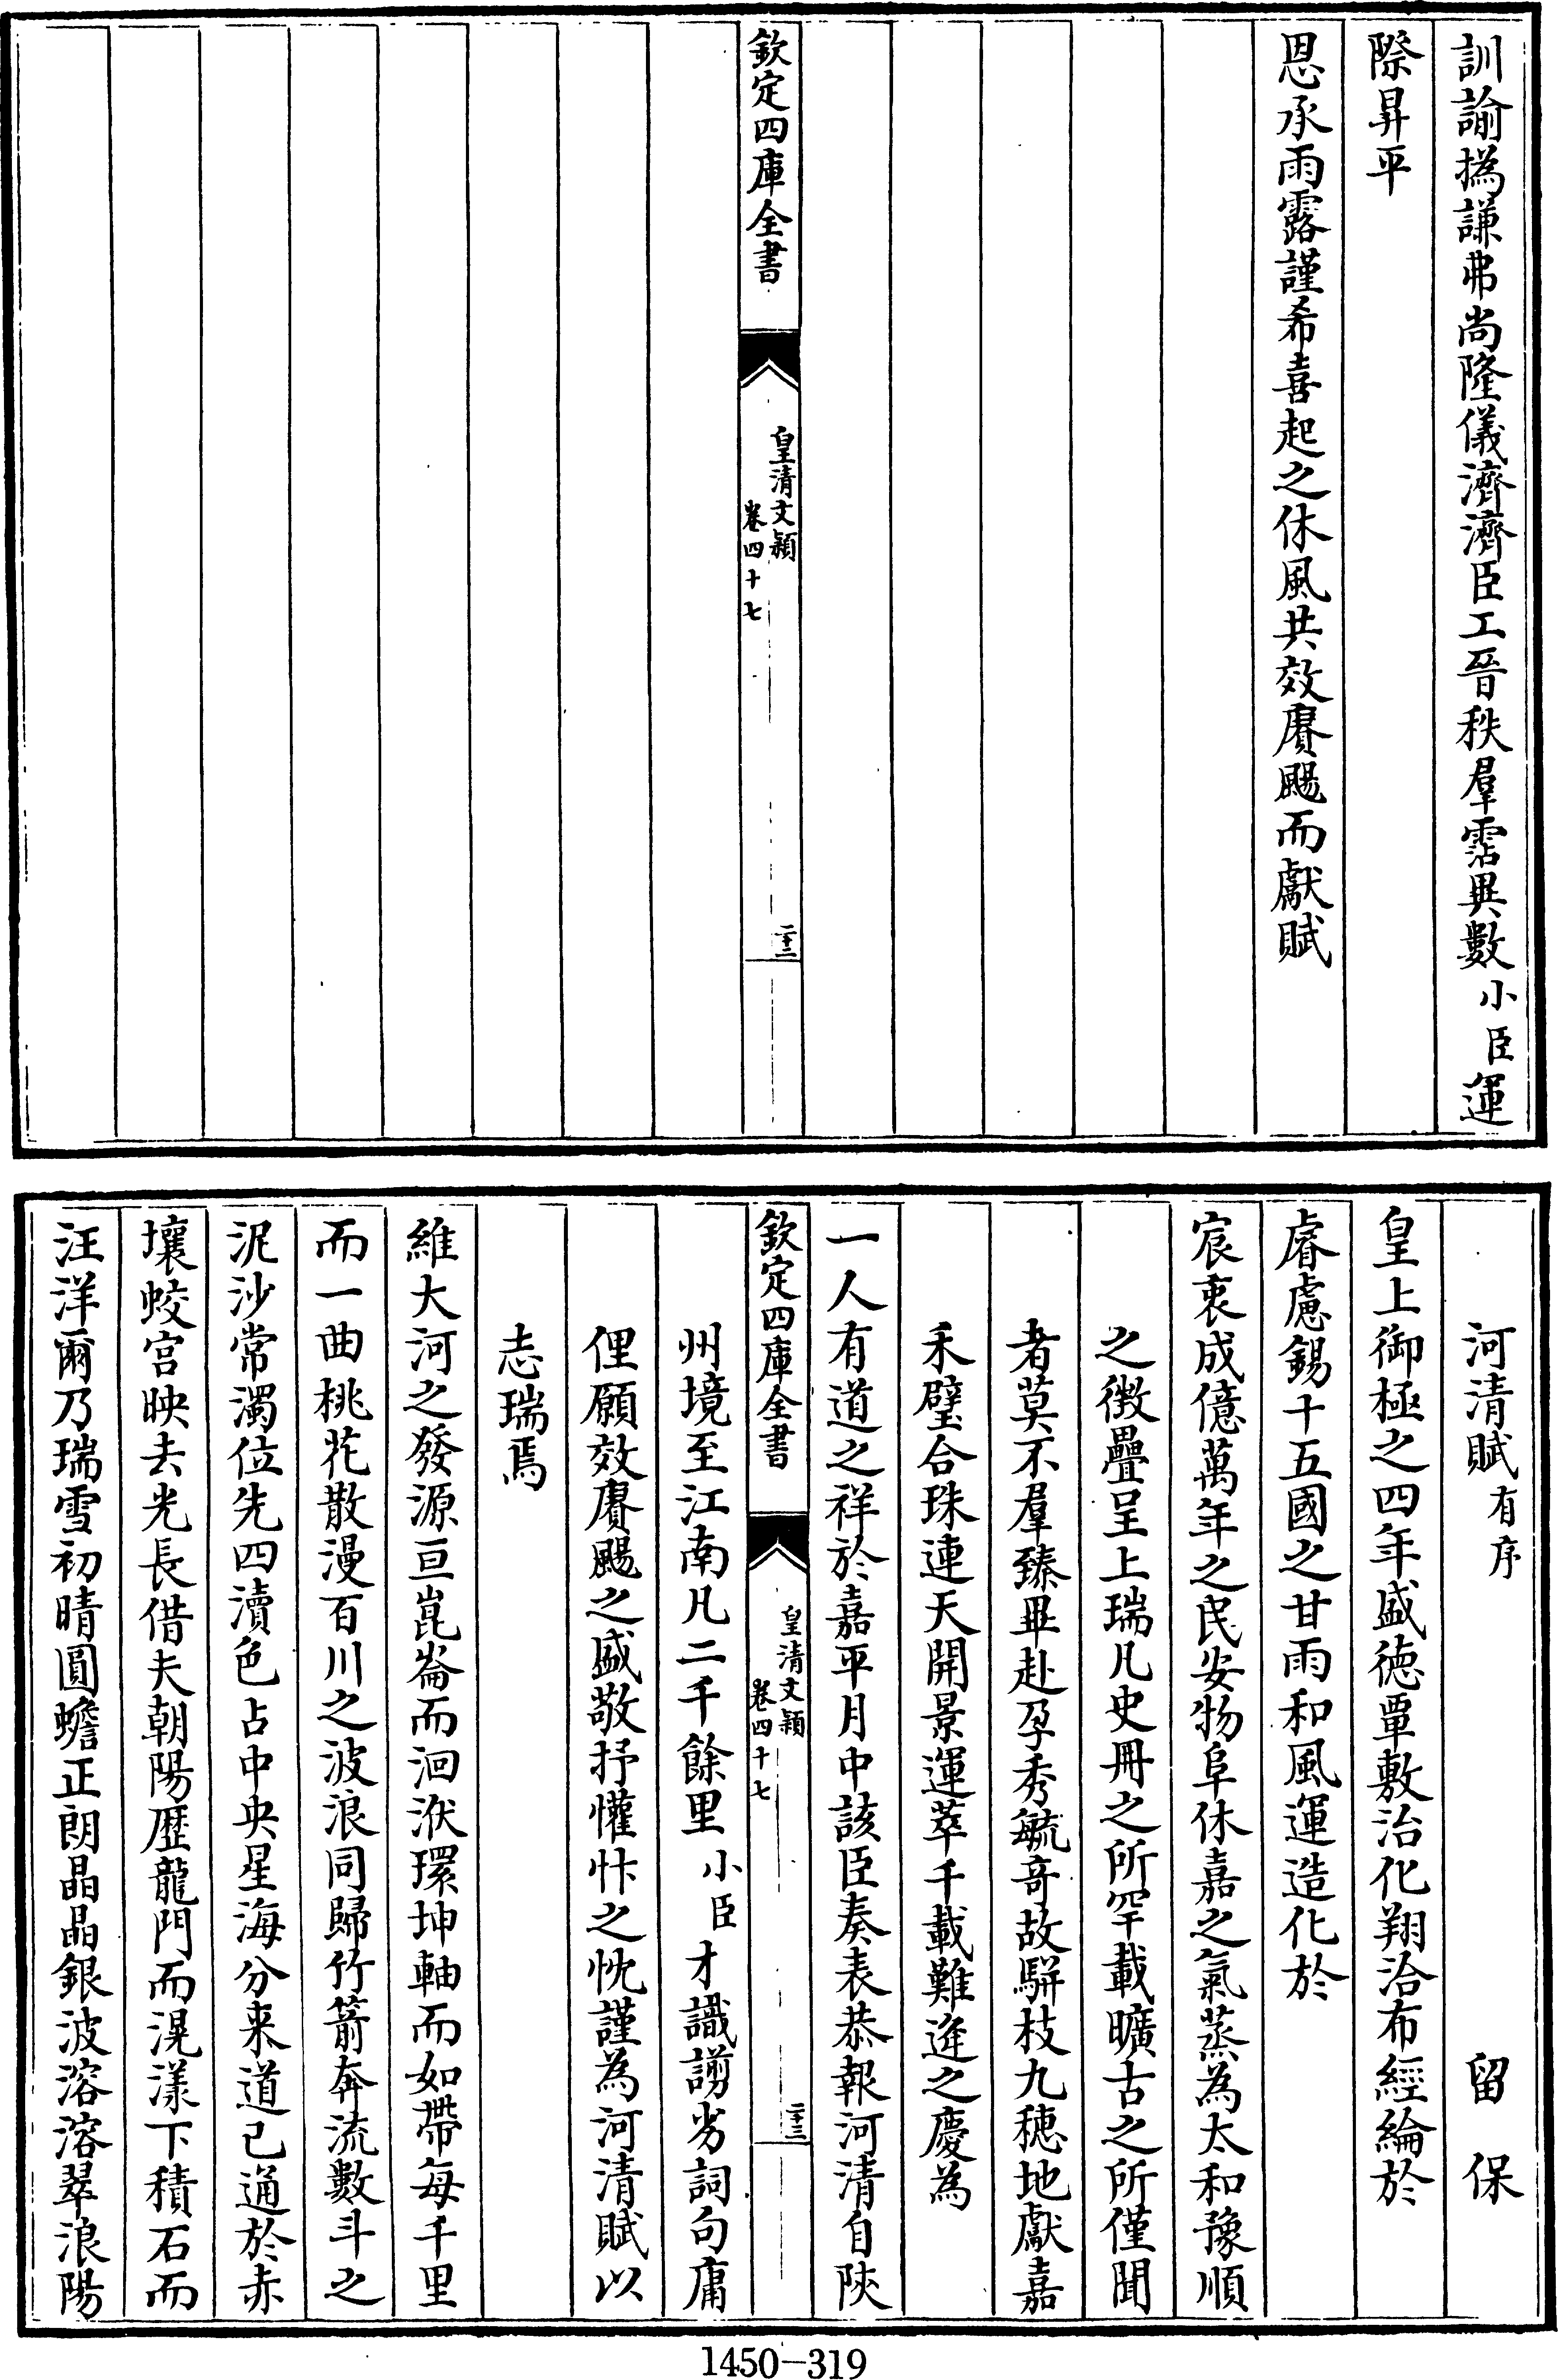 訓諭撝謙弗尚隆儀濟濟臣工晉秩羣霑異數小臣運
際昇平
恩承雨露謹希喜起之休風共效賡颺而獻賦
欽定四庫全書
皇清文穎
卷四十七
二十二
河清賦有序
留保
皇上御極之四年盛德覃敷治化翔洽布經綸於
睿慮錫十五國之甘雨和風運造化於
宸衷成億萬年之民安物阜休嘉之氣蒸為太和豫順
之徴疊呈上瑞凡史冊之所罕載曠古之所僅聞
者莫不羣臻畢赴孕秀毓竒故駢枝九穂地獻嘉
禾璧合珠連天開景運萃千載難逢之慶為
一人有道之祥於嘉平月中該臣奏表恭報河清自陝
欽定四庫全書
皇清文穎
卷四十七
二十三
州境至江南凡二千餘里小臣才識謭劣詞句庸
俚願效賡颺之盛敬抒懽忭之忱謹為河清賦以
志瑞焉
維大河之發源亘崑崙而洄洑環坤軸而如帶每千里
而一曲桃花散漫百川之波浪同歸竹箭奔流數斗之
泥沙常濁位先四瀆色占中央星海分来道已通於赤
壤蛟宫映去光長借夫朝陽歴龍門而滉漾下積石而
汪洋爾乃瑞雪初晴圓蟾正朗晶晶銀波溶溶翠浪陽
1450-319